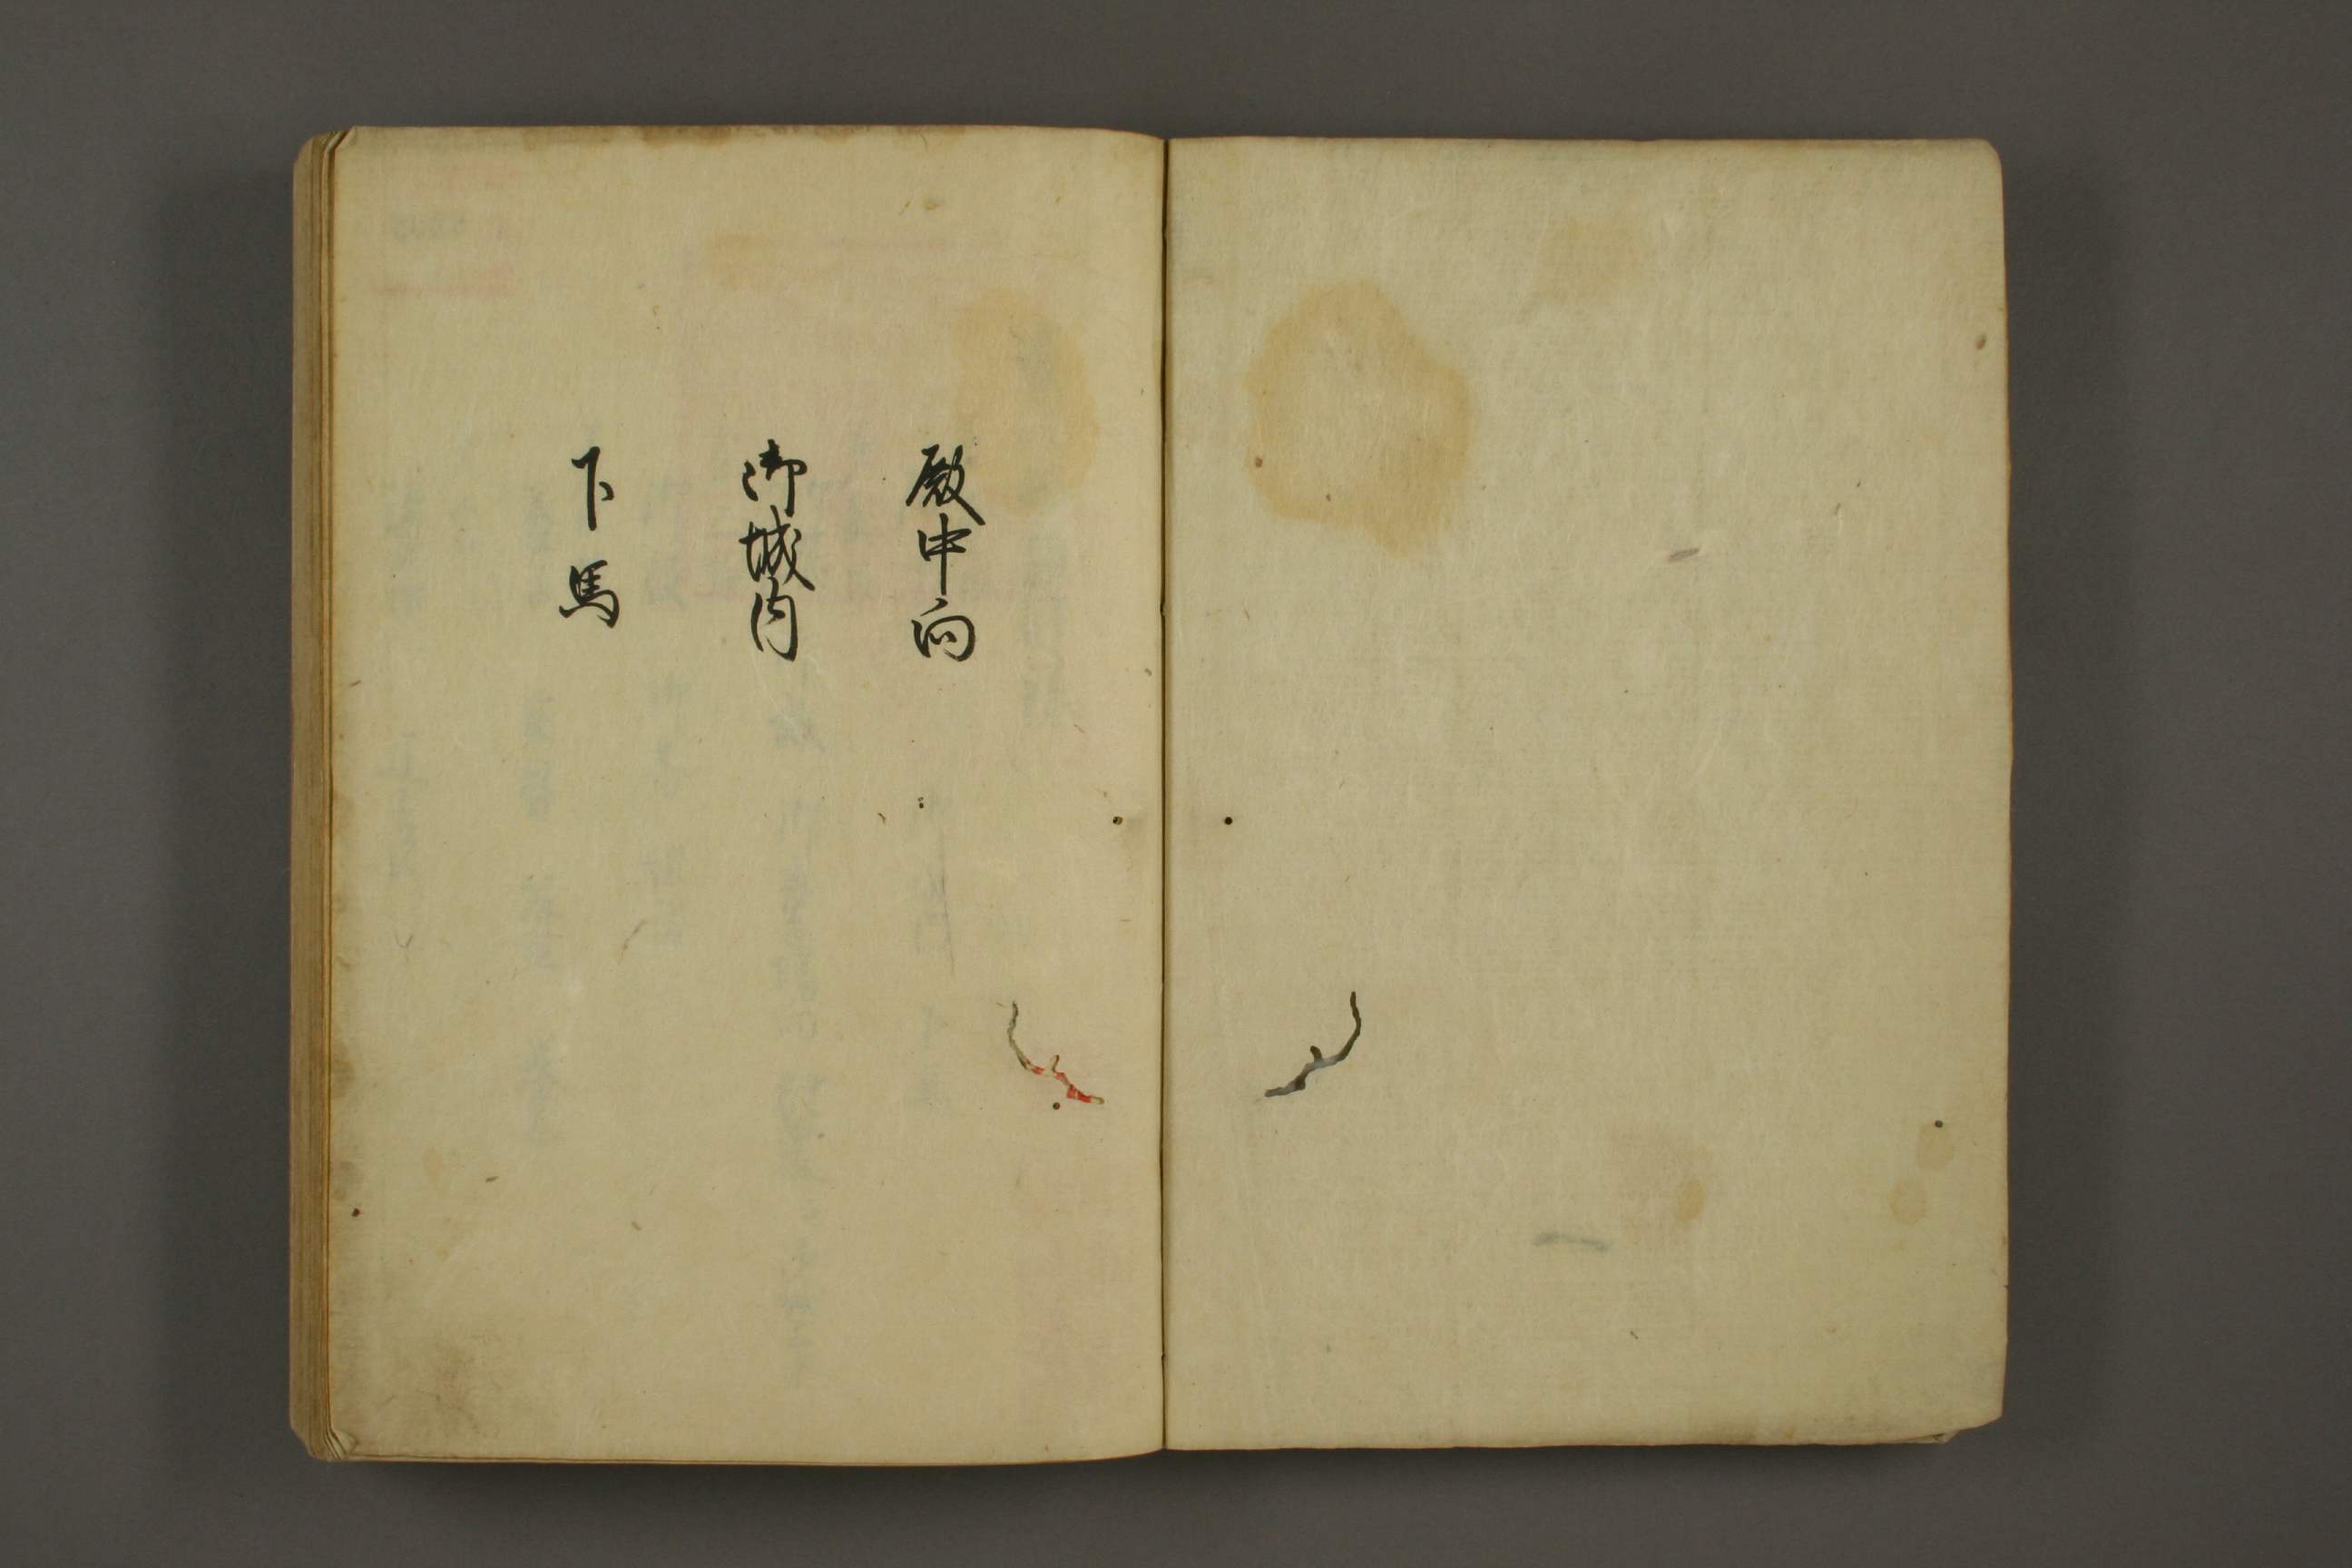 殿中向
御城内
下馬